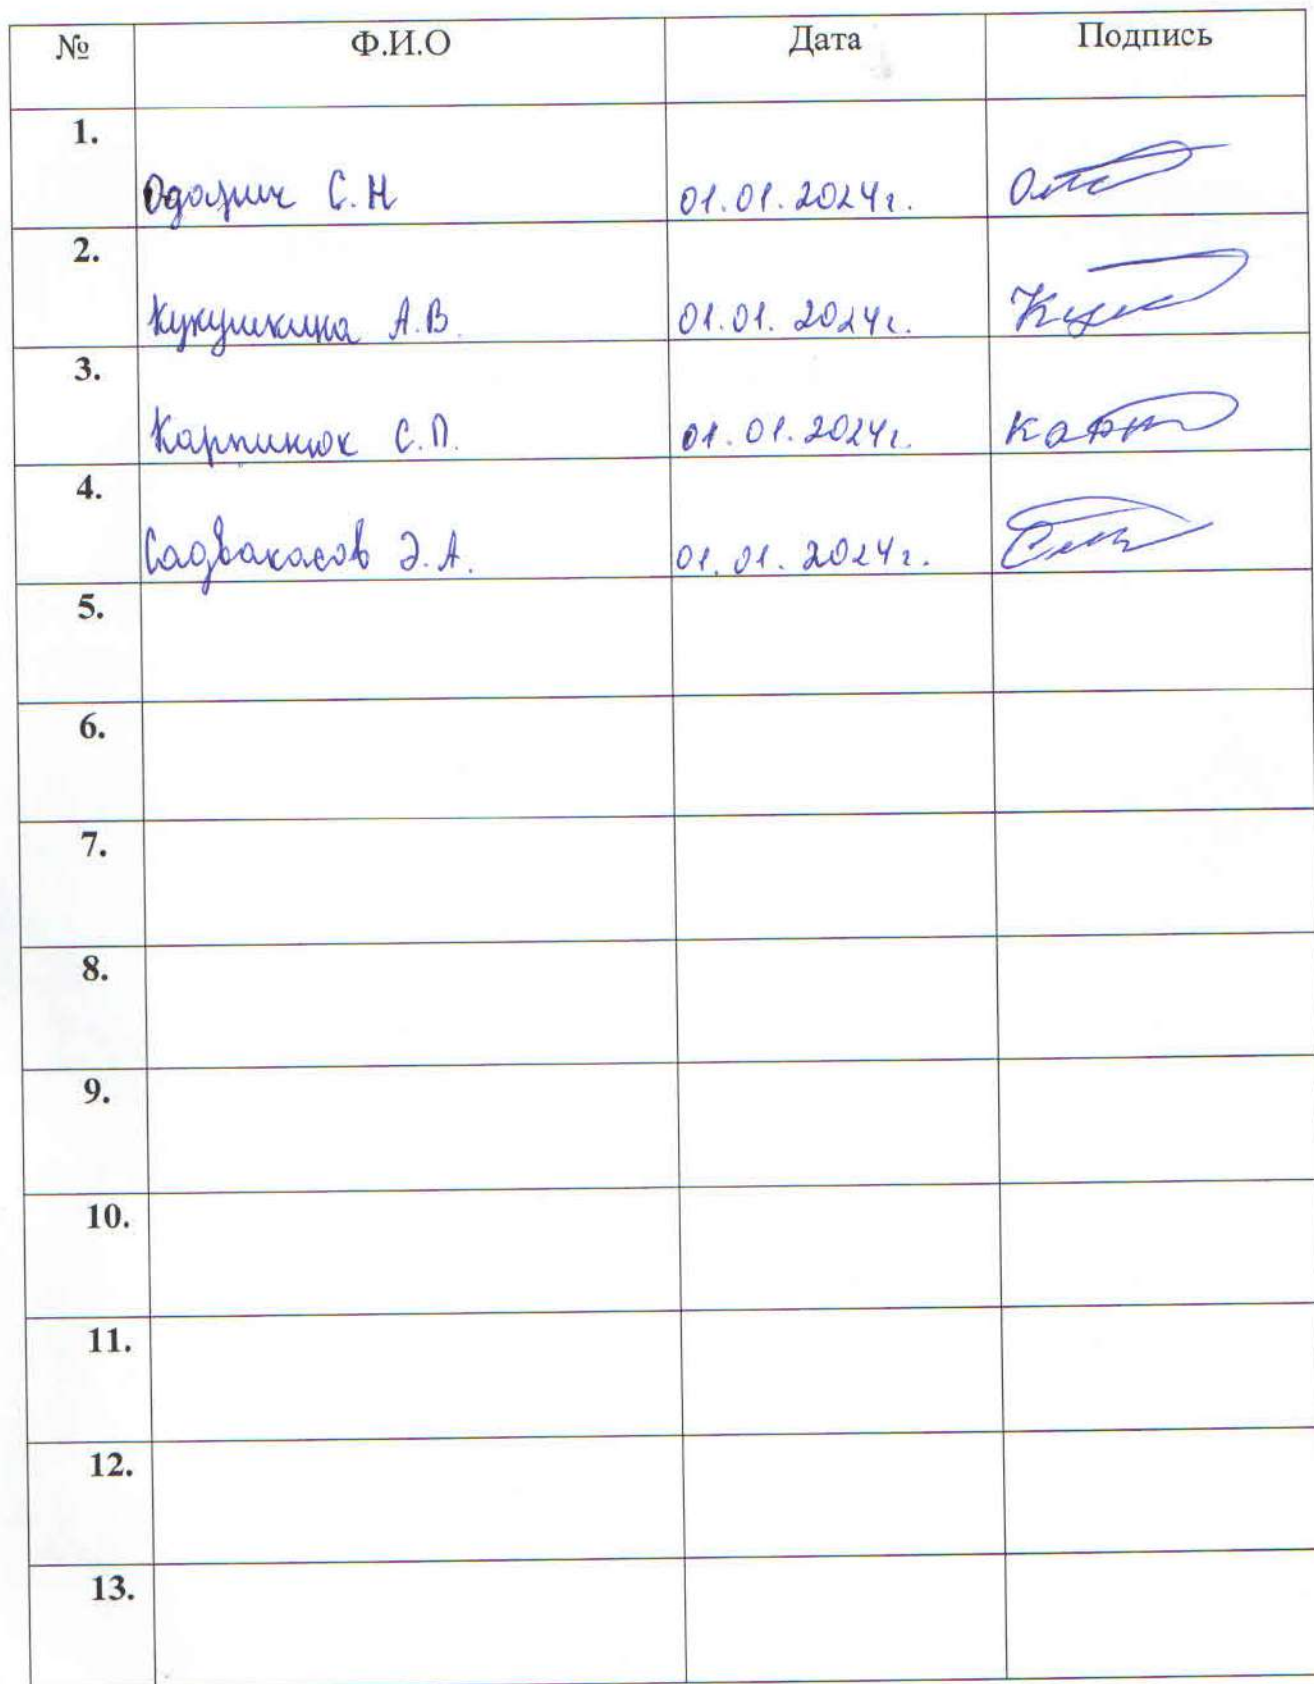 № Ф.И.О Дата Подпись
1. Одарич С.Н 01.01.2024г.
2. Кукушкина А.В. 01.01.2024г.
3. Карпинюк С.П. 01.01.2024г.
4. Садвакасов Э.А. 01.01.2024г.
5.
6.
7.
8.
9.
10.
11.
12.
13.